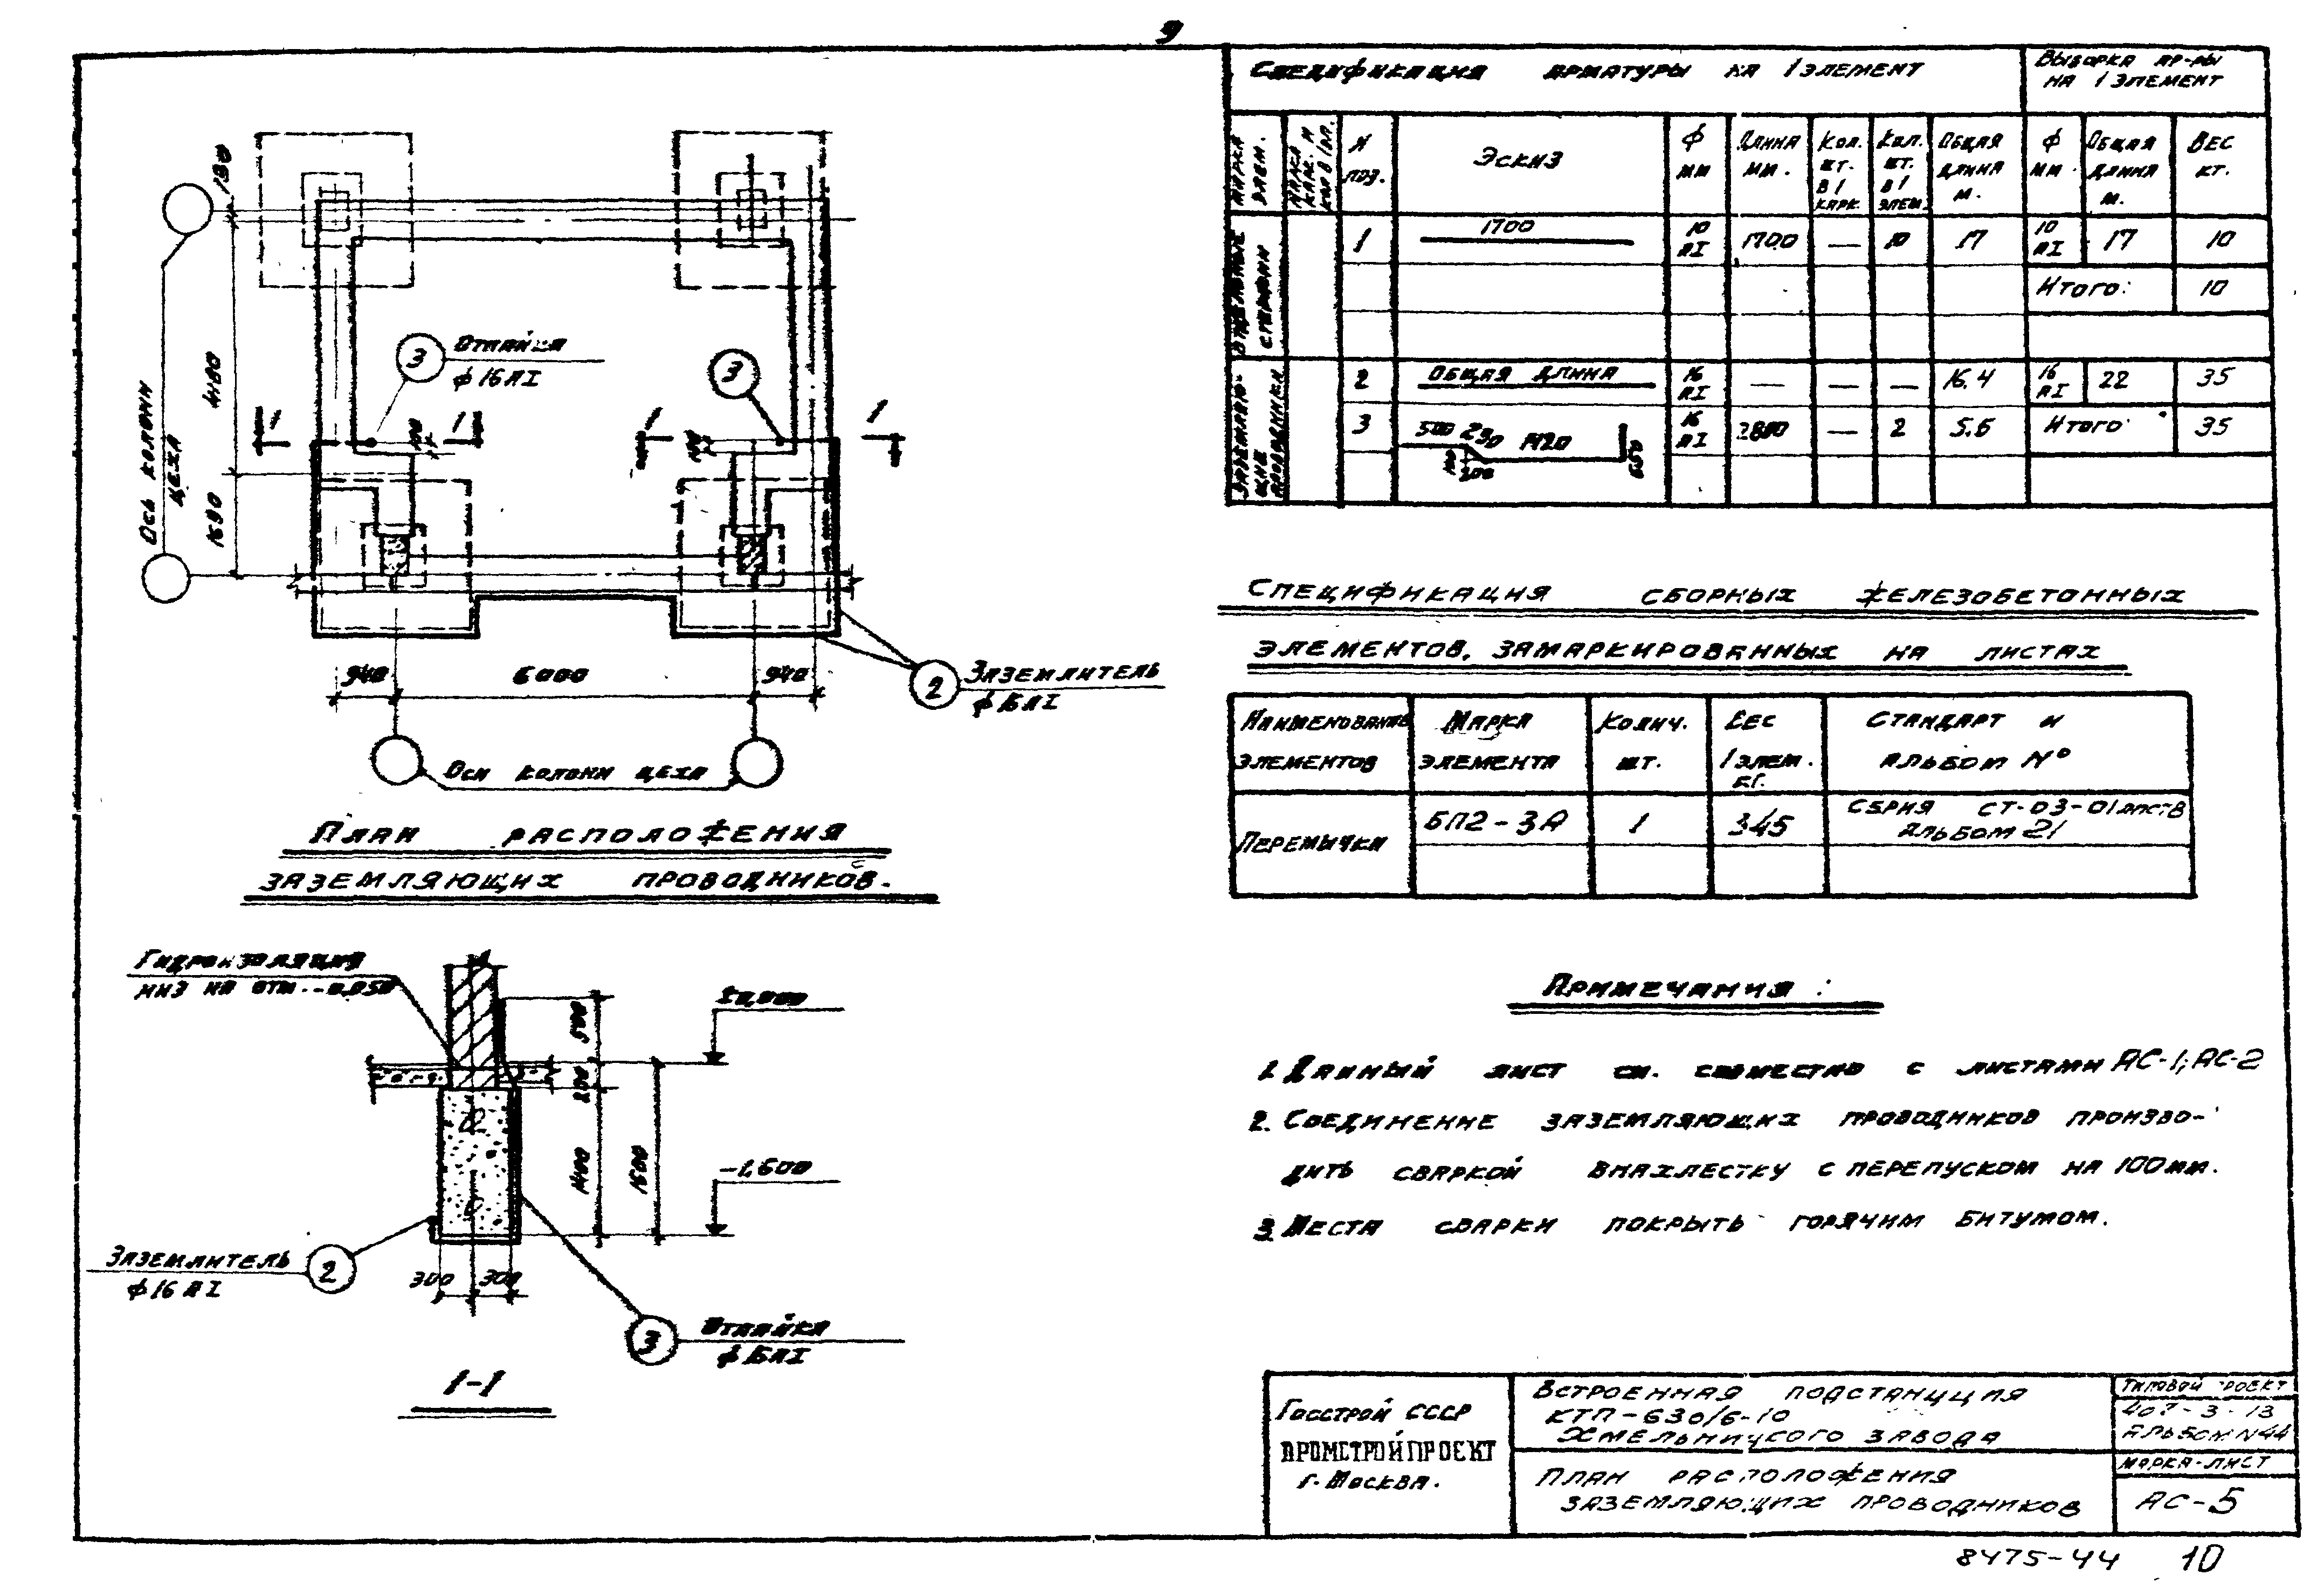 9
Спецификация арматуры на 1 элемент
Выборка ар-ры
на 1 элемент
Марка элем.
Марка карк. и кол. в 1 эл.
N поз.
Эскиз
ф мм
Длина мм.
Кол. шт. в 1 карк.
Кол. шт. в 1 элем.
Общая длина м.
ф мм
Общая длина м.
Вес кг.
Отдельные стержни
1 1700 10 АI 1700 — 10 17 10 АI 17 10
Итого: 10
Заземляющие проводники
2 Общая длина 16 АI — — — 16.4 16 АI 22 35
3 500 230 1420 650 100 200 16 АI 2800 — 2 5.6 Итого: 35
130
4480
1690
Ось колонн
цеха
3 Отпайка
ф 16 АI
3
1 1 1 1
100 100
940 6000 940
2 Заземлитель
ф 16 АI
Оси колонн цеха
План расположения
заземляющих проводников.
Спецификация сборных железобетонных
элементов, замаркированных на листах
Наименование элементов
Марка элемента
Колич. шт.
Вес 1 элем. кг.
Стандарт и альбом №
Перемычки БП2-3А 1 345
Серия СТ-03-01
альбом 21
Гидроизоляция
низ на отм. -0.050
±0,000
500
200
1400
1600
-1,600
Заземлитель 2
ф 16 АI
300 300
3 Отпайка
ф 16 АI
1-1
Примечания:
1. Данный лист см. совместно с листами АС-1; АС-2
2. Соединение заземляющих проводников произво-
дить сваркой внахлестку с перепуском на 100 мм.
3. Места сварки покрыть горячим битумом.
Госстрой СССР
ПРОМСТРОЙПРОЕКТ
г. Москва.
Встроенная подстанция
КТП-630/6-10
Хмельницкого завода
План расположения
заземляющих проводников
Типовой проект
407-3-13
Альбом N44
Марка-лист
АС-5
8475-44 10